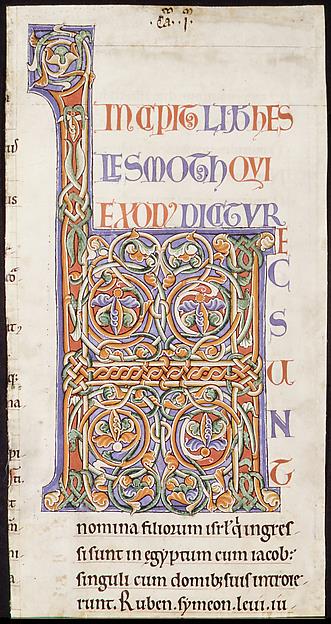 INCIPIT LIB hES
LESMOTh QVI
EXOD' DICITVR
H
E
C
S
U
N
T
nomina filiorum isrl' q ingres
si sunt in egyptum cum iacob:
singuli cum domib; suis introie
runt. Ruben. symeon. leui. iu